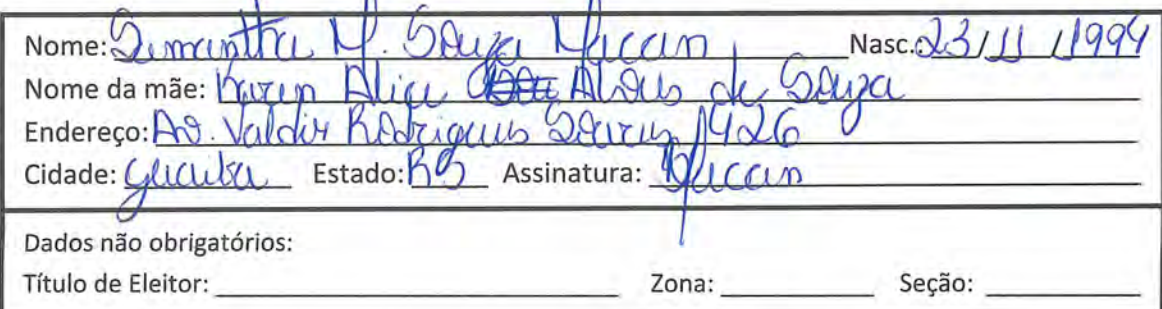 Nome: Samantha M. Souza Maccan Nasc. 23/11/1994
Nome da mãe: Karen Alice Alves de Souza
Endereço: Av. Valdir Rodrigues Soares 1426
Cidade: Guaiba Estado: RS Assinatura: Maccan
Dados não obrigatórios:
Título de Eleitor: Zona: Seção: